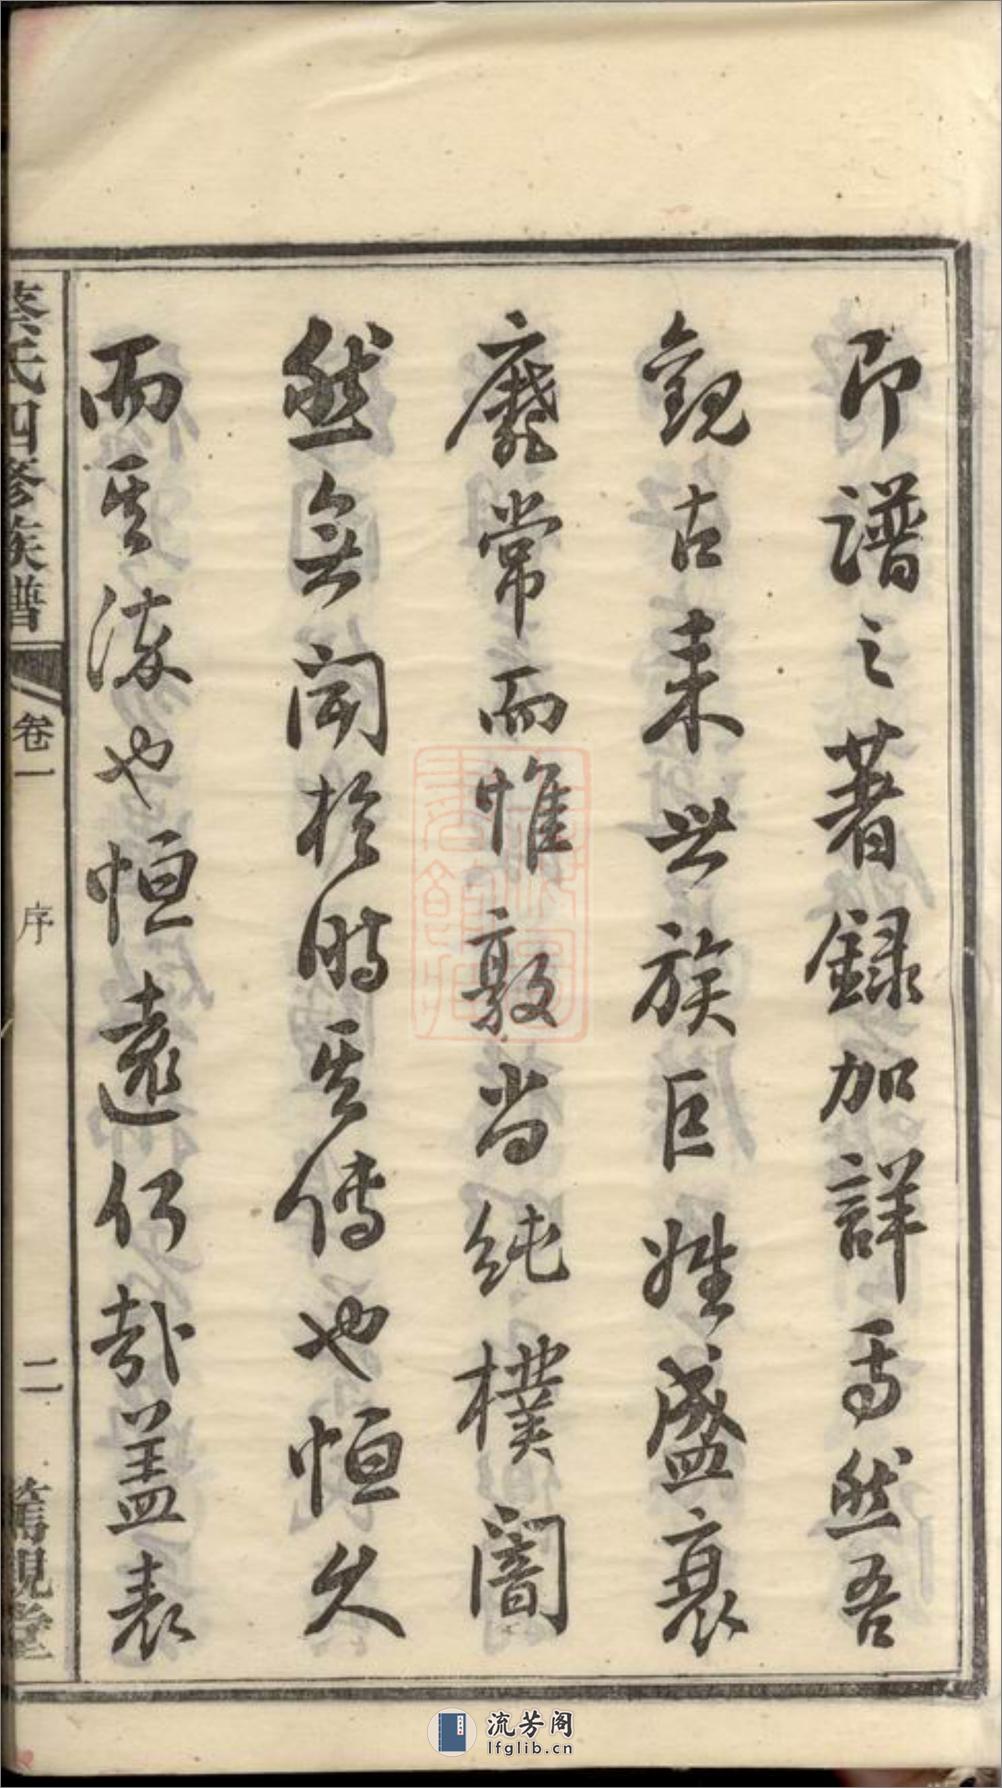 即譜之著録加詳焉然吾
觀古来世族巨姓盛衰
靡常而惟敦尚純樸闇
然無聞於時其傳也恒久
而其流也恒遠何哉盖表
蔡氏四修族譜
卷一
序
二
篤親堂
流芳阁
lfglib.cn